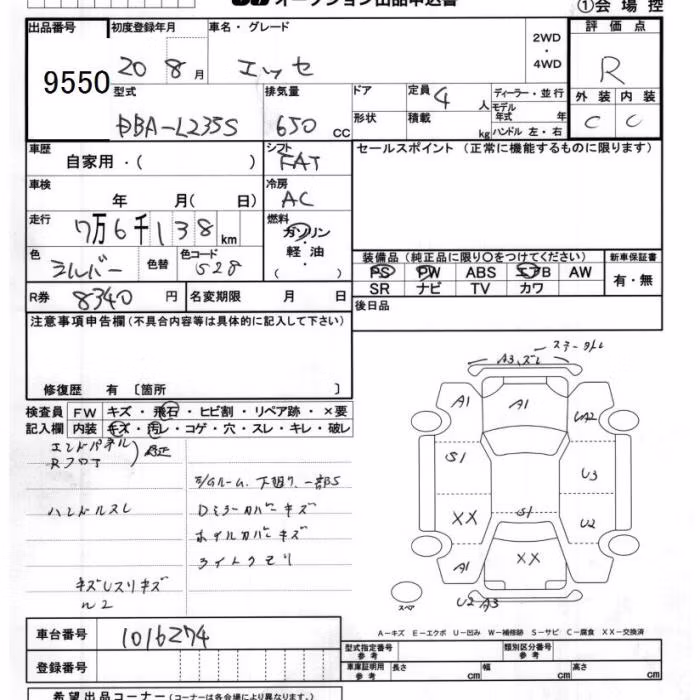 オークション出品申込書
①会場控
出品番号
9550
初度登録年月
20 8月
車名・グレード
エッセ
2WD
・
4WD
評価点
R
型式
DBA-L235S
排気量
650 cc
ドア
定員
4 人
ディーラー・並行
モデル年式 年
形状
積載
kg
ハンドル 左・右
外装 内装
C C
車歴
自家用・( )
シフト
FAT
セールスポイント (正常に機能するものに限ります)
車検
年 月( 日)
冷房
AC
走行
7万6千138km
燃料
ガソリン
軽油
( )
色
シルバー
色替
色コード
S28
装備品 (純正品に限り○をつけてください)
新車保証書
PS PW ABS エアB AW
SR ナビ TV カワ
有・無
R券
8340円
名変期限 月 日
後日品
注意事項申告欄 (不具合内容等は具体的に記入して下さい)
修復歴 有 〔箇所 〕
検査員
記入欄
FW キズ・飛石・ヒビ割・リペア跡・×要
内装 キズ・汚レ・コゲ・穴・スレ・キレ・破レ
エンドパネル
Rフロア
ハンドルスレ
Dミラーカバーキズ
ホイルカバーキズ
ライトクモリ
A3
A1
A1
S1
U3
XX
S1
U2
A1
XX
U2 A3
スペア
A－キズ E－エクボ U－凹み W－補修跡 S－サビ C－腐食 XX－交換済
車台番号
1016274
登録番号
型式指定番号
参考
類別区分番号
参考
車庫証明用
参考
長さ cm
幅 cm
高さ cm
希望出品コーナー (コーナーは各会場により異なります)